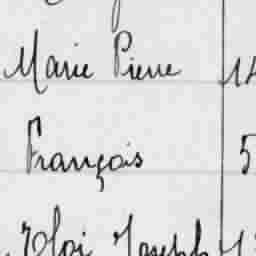 Marie Pierre 14
François 5
Eloi Joseph 1